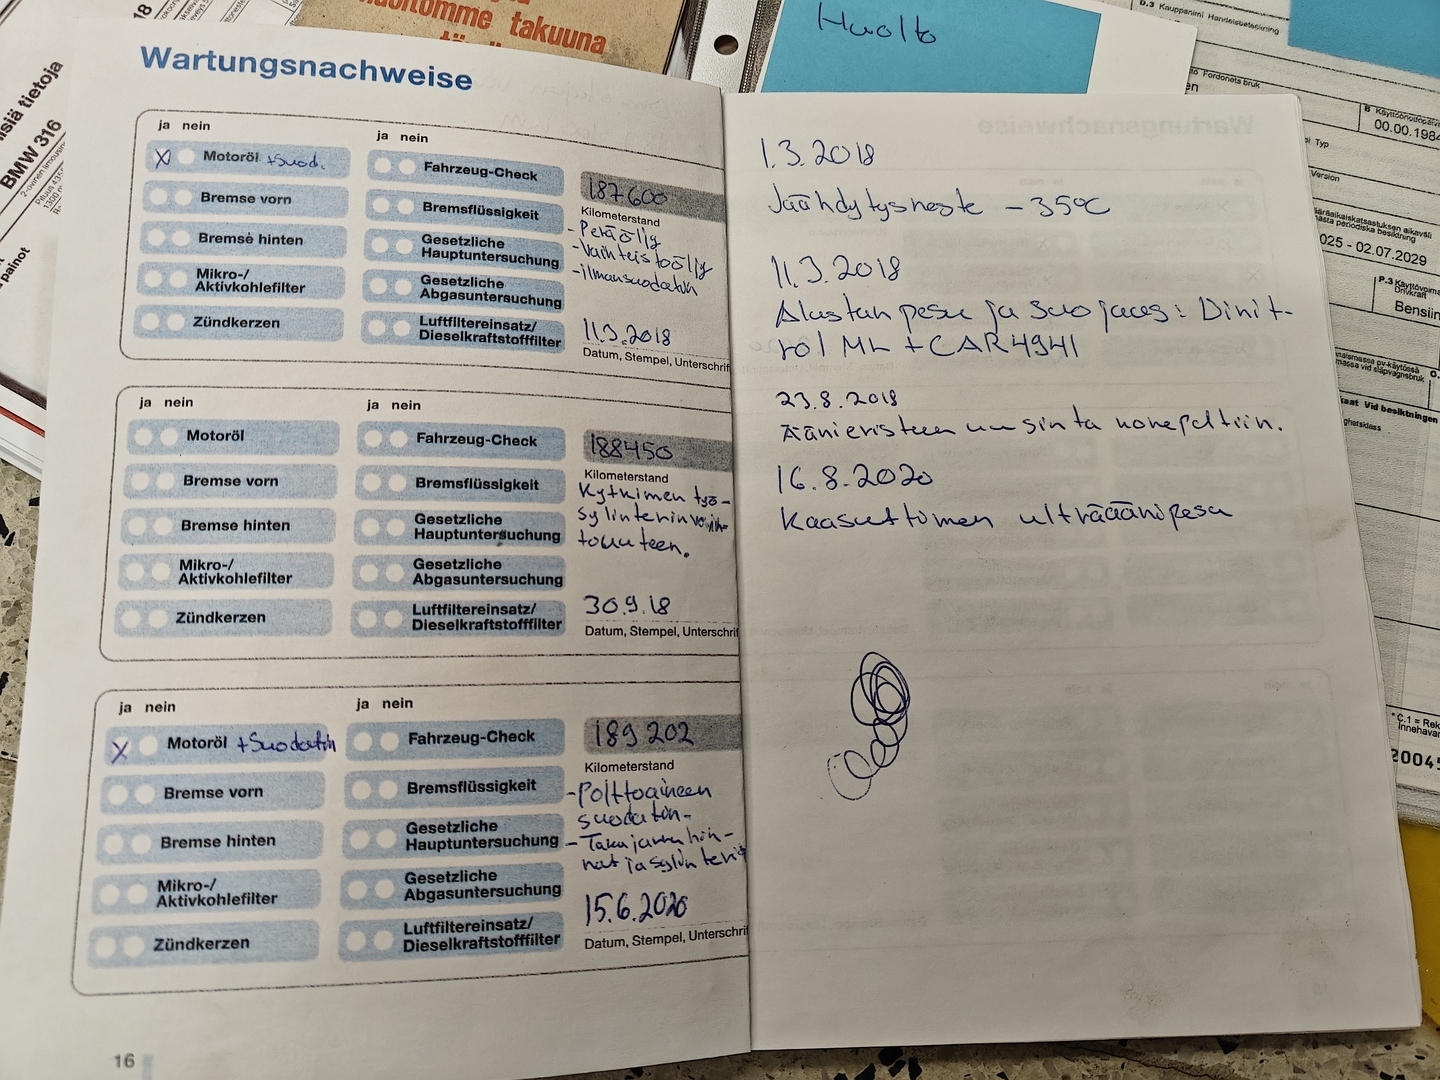 Wartungsnachweise
ja nein
X Motoröl +Suod.
Bremse vorn
Bremse hinten
Mikro-/
Aktivkohlefilter
Zündkerzen
ja nein
Fahrzeug-Check
Bremsflüssigkeit
Gesetzliche
Hauptuntersuchung
Gesetzliche
Abgasuntersuchung
Luftfiltereinsatz/
Dieselkraftstofffilter
187600
Kilometerstand
- Peräöljy
- Vaihteistoöljy
- ilmansuodatin
11.3.2018
Datum, Stempel, Unterschrif
ja nein
Motoröl
Bremse vorn
Bremse hinten
Mikro-/
Aktivkohlefilter
Zündkerzen
ja nein
Fahrzeug-Check
Bremsflüssigkeit
Gesetzliche
Hauptuntersuchung
Gesetzliche
Abgasuntersuchung
Luftfiltereinsatz/
Dieselkraftstofffilter
188450
Kilometerstand
Kytkimen työ-
sylinterin
30.9.18
Datum, Stempel, Unterschrif
ja nein
X Motoröl +Suodatin
Bremse vorn
Bremse hinten
Mikro-/
Aktivkohlefilter
Zündkerzen
ja nein
Fahrzeug-Check
Bremsflüssigkeit
Gesetzliche
Hauptuntersuchung
Gesetzliche
Abgasuntersuchung
Luftfiltereinsatz/
Dieselkraftstofffilter
189 202
Kilometerstand
- Polttoaineen
suodatin-
- Takajarruhih-
nat ja sylinterit
15.6.2020
Datum, Stempel, Unterschrif
16
1.3.2018
Jäähdytysneste -35°C
11.3.2018
Alustan pesu ja suojaus: Dinit-
rol ML + CAR 4941
23.8.2018
Äänieristeen uusinta konepeltiin.
16.8.2020
Kaasuttimen ultraäänipesu
Huolto
takuuna
BMW 316
D.3 Kauppanimi Handelsbeteckning
Fordonets bruk
00.00.1984
Typ
Version
025 - 02.07.2029
P.3 Käyttövoima
Drivkraft
Bensiin
Vid besiktningen
C.1 = Rek
Innehavar